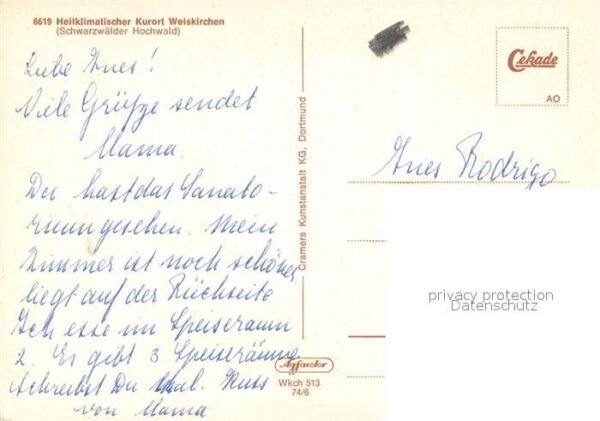 6619 Heilklimatischer Kurort Weiskirchen
(Schwarzwälder Hochwald)
Liebe Ines!
Viele Grüße sendet
Mama.
Du hast das Sanato-
rium gesehen. Mein
Zimmer ist noch schöner,
liegt auf der Rückseite
Ich esse im Speiseraum
2. Es gibt 3 Speiseräume
Schreibst Du mal. Kuss
von Mama
Cramers Kunstanstalt KG, Dortmund
Agfinolor
Wkch 513
74/6
Cekade
AO
Ines Rodrigo
privacy protection
Datenschutz